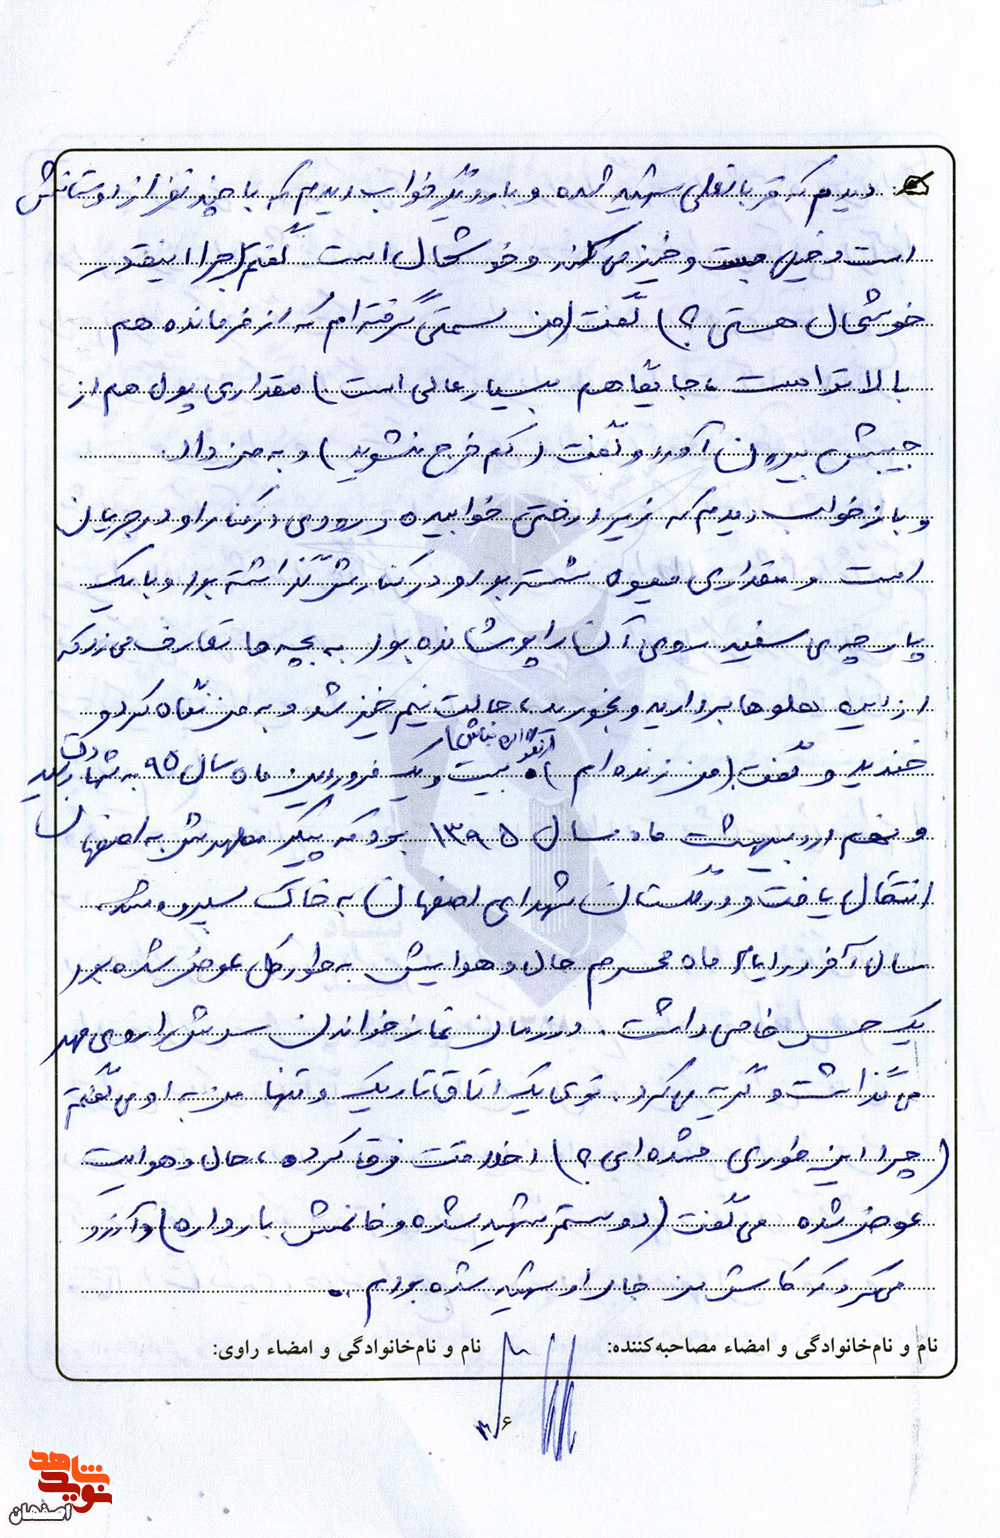 دیدم که قربانعلی شهید شده و بار دیگر خواب دیدم که با چند نفر از دوستانش
است و خیلی جست و خیز می کند و خوشحال است گفتم (چرا اینقدر
خوشحال هستی؟) گفت (من سمتی گرفته ام که از فرمانده هم
بالاتر است، جایگاهم بسیار عالی است) مقداری پول هم از
جیبش بیرون آورد و گفت (کم خرج نشوید) و به من داد.
و باز خواب دیدم که زیر درختی خوابیده و رودی در کنار او در جریان
است و مقداری میوه شسته بود و در کنارش گذاشته بود و با یک
پارچه ی سفید روی آن را پوشانده بود به بچه ها تعارف می زد که
از این هلوها بردارید و بخورید، حالت نیم خیز شد و به من نگاه کرد و
خندید و گفت (من زنده ام) بیست و یک فروردین ماه سال ۹۵ به شهادت رسید
و نهم اردیبهشت ماه سال ۱۳۹۵ بود که پیکر مطهرش به اصفهان
انتقال یافت و در گلستان شهدای اصفهان به خاک سپرده شد.
سال آخر در ایام ماه محرم حال و هوایش به طور کل عوض شده بود
یک حس خاصی داشت. در زمان نماز خواندن سرش را روی مهر
می گذاشت و گریه می کرد. توی یک اتاق تاریک و تنها من به او می گفتم
(چرا این طوری شده ای؟) اخلاقت فرق کرده، حال و هوایت
عوض شده می گفت (دوستم شهید شده و خانمش باردار) و آرزو
می کرد که کاش من جای او شهید شده بودم.
نام و نام‌خانوادگی و امضاء مصاحبه‌کننده: نام و نام‌خانوادگی و امضاء راوی:
۶
نوید شاهد
اصفهان